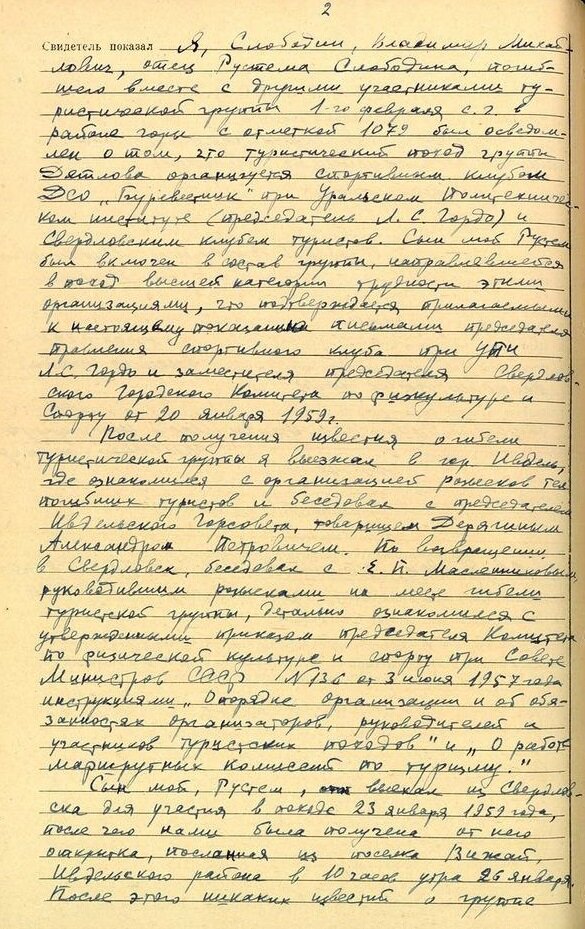 2
Свидетель показал Я, Слободин, Владимир Михай-
лович, отец Рустема Слободина, погиб-
шего вместе с другими участниками ту-
ристической группы 1-го февраля с.г. в
районе горы с отметкой 1079 был осведом-
лен о том, что туристический поход группы
Дятлова организуется спортивным клубом
ДСО „Буревестник" при Уральском Политехничес-
ком институте (председатель Л.С. Гордо) и
Свердловским клубом туристов. Сын мой Рустем
был включен в состав группы, направлявшейся
в поход высшей категории трудности этими
организациями, что подтверждается прилагаемыми
к настоящему показанию письмами председателя
правления спортивного клуба при УПИ
Л.С. Гордо и заместителя председателя Свердлов-
ского Городского Комитета по физкультуре и
спорту от 20 января 1959г.
После получения известия о гибели
туристической группы я выезжал в гор. Ивдель,
где ознакомился с организацией розысков тел
погибших туристов и беседовал с председателем
Ивдельского Горсовета, товарищем Дерягиным
Александром Петровичем. По возвращении
в Свердловск, беседовал с Е.П. Масленниковым
руководившим розысками на месте гибели
туристской группы, детально ознакомился с
утвержденными приказом председателя Комитета
по физической культуре и спорту при Совете
Министров СССР №136 от 3 июня 1957 года
инструкциями „О порядке организации и об обя-
занностях организаторов, руководителей и
участников туристских походов" и „О работе
маршрутных комиссий по туризму."
Сын мой, Рустем, выехал из Свердлов-
ска для участия в походе 23 января 1959 года,
после чего нами была получена от него
открытка, посланная из поселка Вижай,
Ивдельского района в 10 часов утра 26 января.
После этого никаких известий о группе